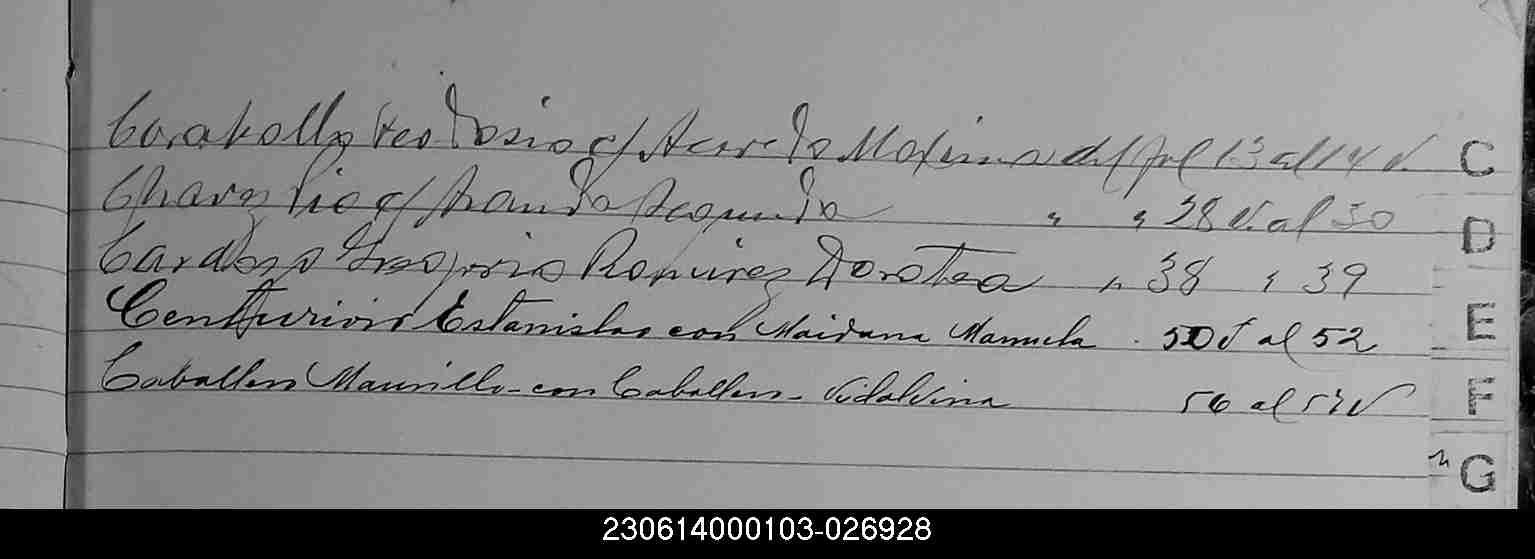 Caraballo Teodosio c/ Acevedo Maxima del fol 13 al 14 v.
Chavez Pio c/ Aranda Segunda " " 28 v. al 30
Cardozo Gregorio Ramirez Dorotea " 38 " 39
Centurion Estanislao con Maidana Manuela 50 v al 52
Caballero Maurillo - con Caballero - Vidalvina 56 al 57 v
C
D
E
F
G
230614000103-026928